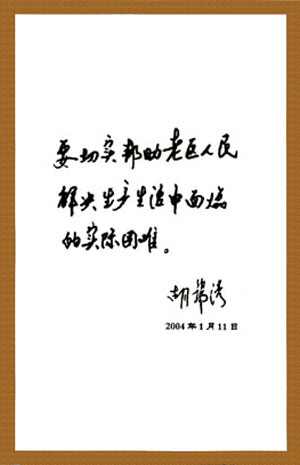 要切实帮助老区人民
解决生产生活中面临
的实际困难。
胡锦涛
2004年1月11日